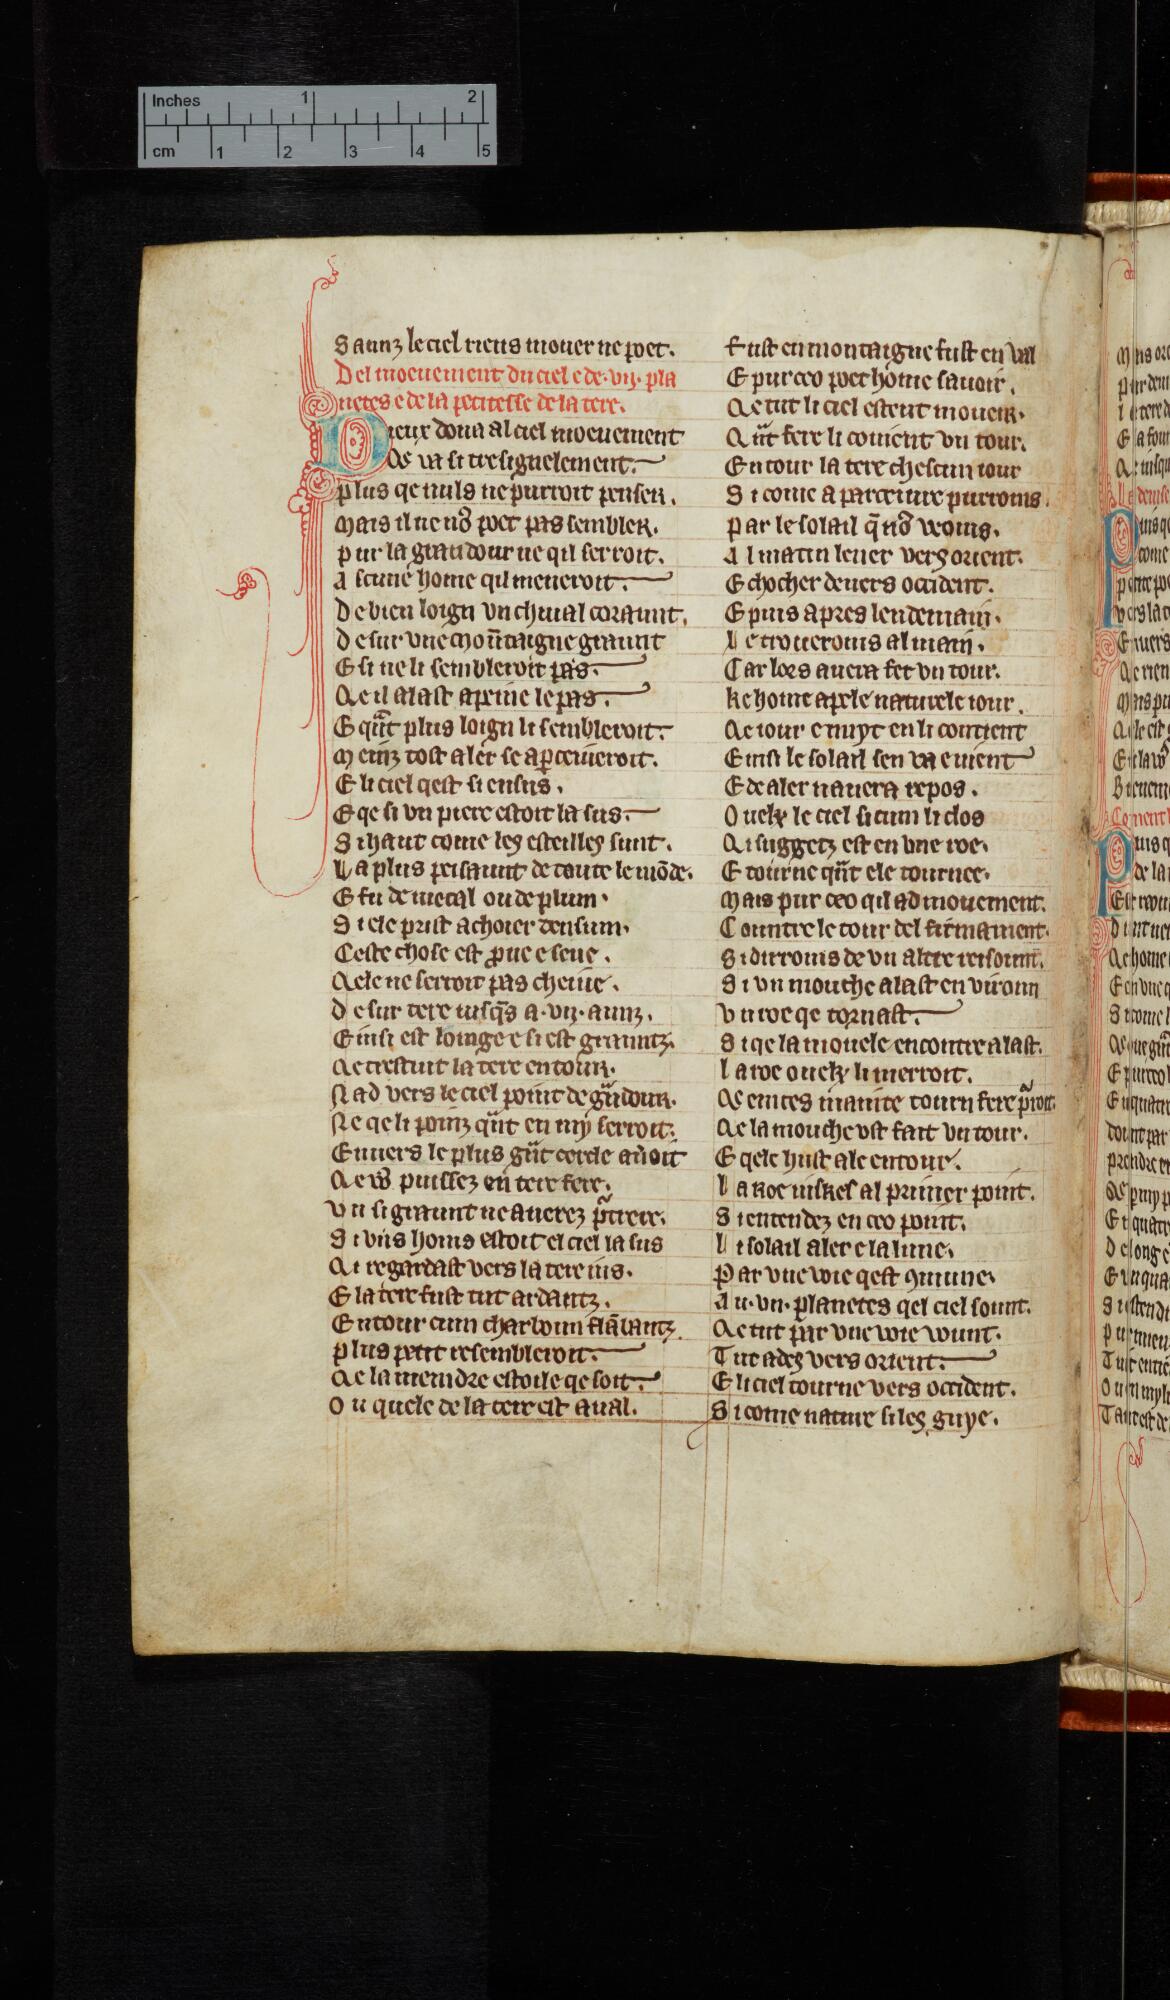 Inches 1 2
cm 1 2 3 4 5
Saunz le ciel riens mouer ne poet.
Del moeuement du ciel e de .vij. pla
netes e de la petitesse de la tere.
Dieux dona al ciel moeuement
Qe va si tresignelement.
plus qe nuls ne purroit penser.
Mais il ne no9 poet pas sembler.
pur la grandour ne qil serroit.
a scune home qil meueroit.
De bien loign vn chiual coraunt.
desur vne mou̅taigne graunt
E si ne li sembleroit pas.
Qe il alast a peine le pas.
E qu̅t plus loign li sembleroit.
Meinz tost aler se aꝑceiueroit.
E li ciel qest si ensus.
E qe si vn piere estoit la sus.
Si haut come les esteilles sunt.
La plus peisaunt de toute le mo̅de.
E fu de metal ou de plum.
Si ele prist a choier densum.
Ceste chose est ꝓue e seue.
Qele ne serroit pas cheiue.
desur tere iusq̅s a .vij. aunz.
Einsi est loinge e si est grauntz.
Qe trestut la tere entour.
Nad vers le ciel point de gu̅dour.
Ne qe li poinz qu̅t en my serroit.
Enuers le plus gu̅t cercle au̅oit
Qe vo9 puissez en tere fere.
Vn si graunt ne auerez p̅trere.
Si vns homs estoit el ciel la sus
Qi regardast vers la tere ius.
E la tere fust tut ardantz.
Entour cum charboun fla̅bantz.
plus petit resembleroit.
Qe la meindre estoile qe soit.
Ou quele de la tere est aual.
Fust en montaigne fust en val
E pur ceo poet home sauoir.
Qe tut li ciel estent moueir.
Qu̅t fere li couient vn tour.
Entour la tere chescun iour
Sicome aparceiure purroms.
par le solail q̅ no9 veoms.
Al matin leuer vers orient.
E chocher deuers occident.
E puis apres lendemain.
Le trouerouis al main.
Car lors auera fet vn tour.
Ke home apele naturele iour.
Qe iour e nuyt en li contient
Einsi le solail sen va e uient
E de aler nauera repos.
Ouelx le ciel sicum li clos
Qi suggetz est en vne roe.
E tourne qu̅t ele tournee.
Mais pur ceo qil ad mouement.
Countre le tour del firmament.
Si dirrouis de vn altre reisoun.
Si vn mouche alast en viroun
Vn roe qe tornast.
Si qe la mouele encontre alast.
La roe ouelx li merroit.
Qe la mouche vst fait vn tour.
E qele hust ale entour.
La roe uiskes al primer point.
Si entendez en ceo point.
Li solail aler e la lune.
Par vne voie qest ꝯmune.
Qe tut par vne voie vount.
Tut adez vers orient.
E li ciel tourne vers occident.
Sicome nature si les guye.